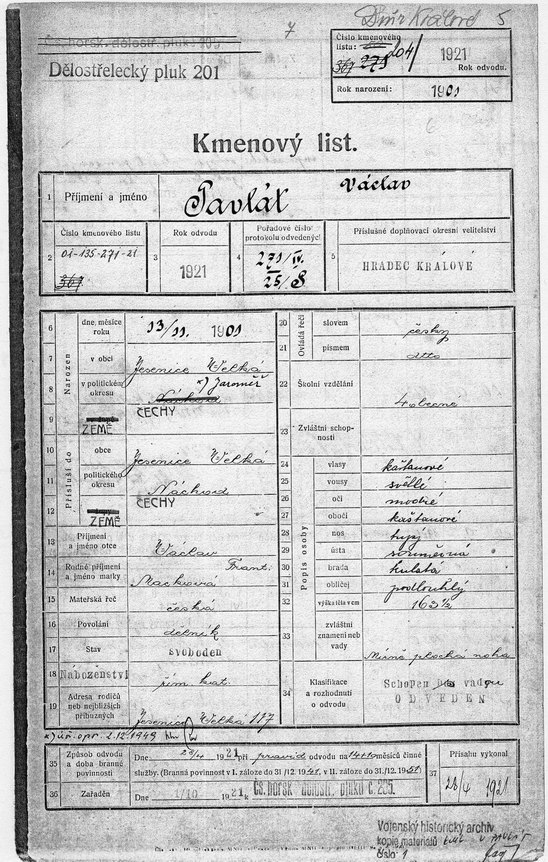 Dvůr Králové 5
7
Čs. horsk. dělostř. pluk. 205.
Dělostřelecký pluk 201
Číslo kmenového listu:
367 271 204/
1921
Rok odvodu.
Rok narození: 1901
Kmenový list.
1 Příjmení a jméno Pavlát Václav
2 Číslo kmenového listu 01-135-271-21 367
3 Rok odvodu 1921
4 Pořadové číslo protokolu odvedených 271/IV. 25/8
5 Příslušné doplňovací okresní velitelství HRADEC KRÁLOVÉ
Narozen
6 dne, měsíce roku 13/11. 1901
7 v obci Jesenice Velká
8 v politickém okresu x) Jaroměř Náchod
9 ZEMĚ ČECHY
Přísluší do
10 obce Jesenice Velká
11 politického okresu Náchod
12 ZEMĚ ČECHY
13 Příjmení a jméno otce Václav
14 Rodné příjmení a jméno matky Macková Frant.
15 Mateřská řeč česká
16 Povolání dělník
17 Stav svoboden
18 Náboženství řím. kat.
19 Adresa rodičů neb nejbližších příbuzných Jesenice Velká 117
Ovládá řeči
20 slovem česky
21 písmem dtto
22 Školní vzdělání 4 obecné
23 Zvláštní schopnosti
Popis osoby
24 vlasy kaštanové
25 vousy světlé
26 oči modré
27 obočí kaštanové
28 nos tupý
29 ústa souměrná
30 brada kulatá
31 obličej podlouhlý
32 výška těla v cm 163½
33 zvláštní znamení neb vady Mírně plochá noha
34 Klasifikace a rozhodnutí o odvodu Schopen bez vady ODVEDEN
x) úř. opr. 2.12.1949
35 Způsob odvodu a doba branné povinnosti
Dne 28/4 1921 při pravid odvodu na 14 měsíců činné
služby. (Branná povinnost v I. záloze do 31./12. 1941, v II. záloze do 31./12. 1951.
36 Zařaděn Dne 1/10 1921 k Čs. horsk. dělostř. pluku č. 205.
37 Přísahu vykonal 28/4 1921
Vojenský historický archiv
kopie materiálů
číslo